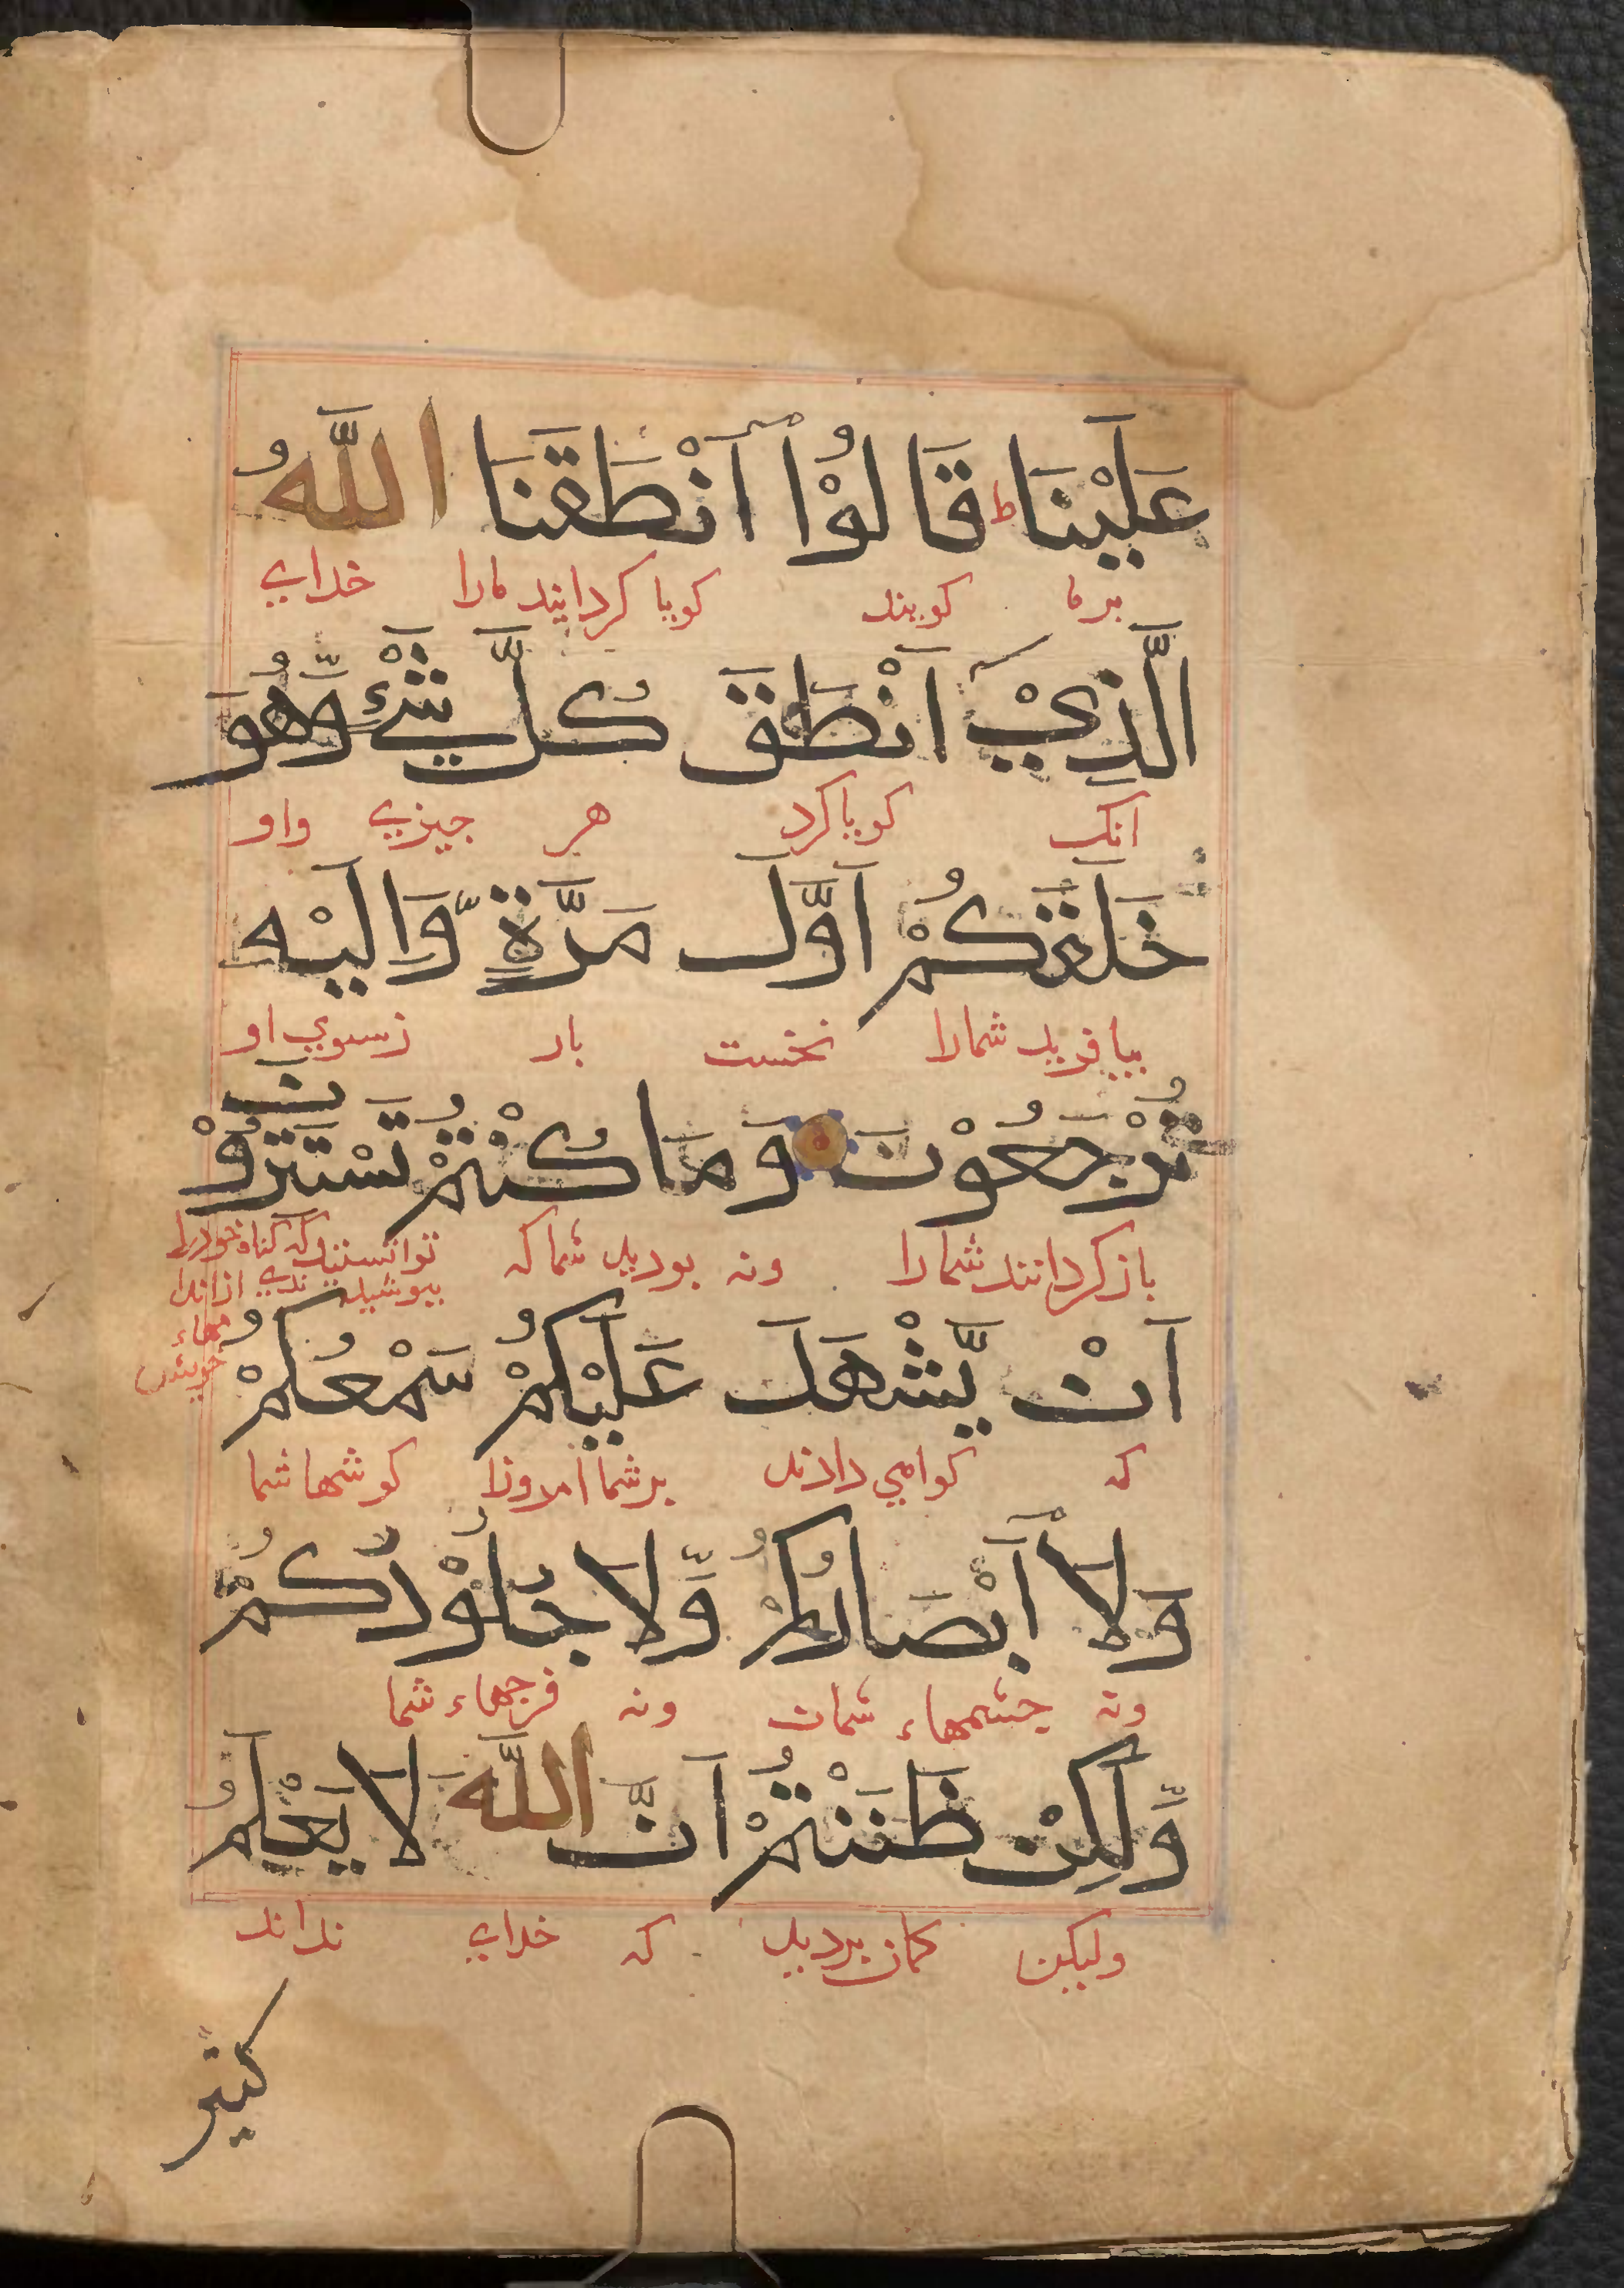 عَلَيْنَا ط قَالُوْا اَنْطَقَنَا اللَّهُ
برما کویند کویا کردانید مارا خدای
الَّذِيْ اَنْطَقَ كُلَّ شَيْءٍ وَّهُوَ
انک کویا کرد هر جیزی واو
خَلَقَكُمْ اَوَّلَ مَرَّةٍ وَّاِلَيْهِ
بیافرید شمارا نخست بار زسوی او
تُرْجَعُوْنَ وَمَا كُنْتُمْ تَسْتَتِرُوْنَ
باز کردانند شمارا ونه بودید شما که توانستید که کناه خود را
بپوشید
خویش
اَنْ يَّشْهَدَ عَلَيْكُمْ سَمْعُكُمْ
که کواهی دادند بر شما امروز کوشها شما
وَلَا اَبْصَارُكُمْ وَّلَا جُلُوْدُكُمْ
ونه جشمهاء شمات ونه فرجهاء شما
وَّلَكِنْ ظَنَنْتُمْ اَنَّ اللَّهَ لَا يَعْلَمُ
ولیکن کمان بردید که خدای نداند
كثيرً